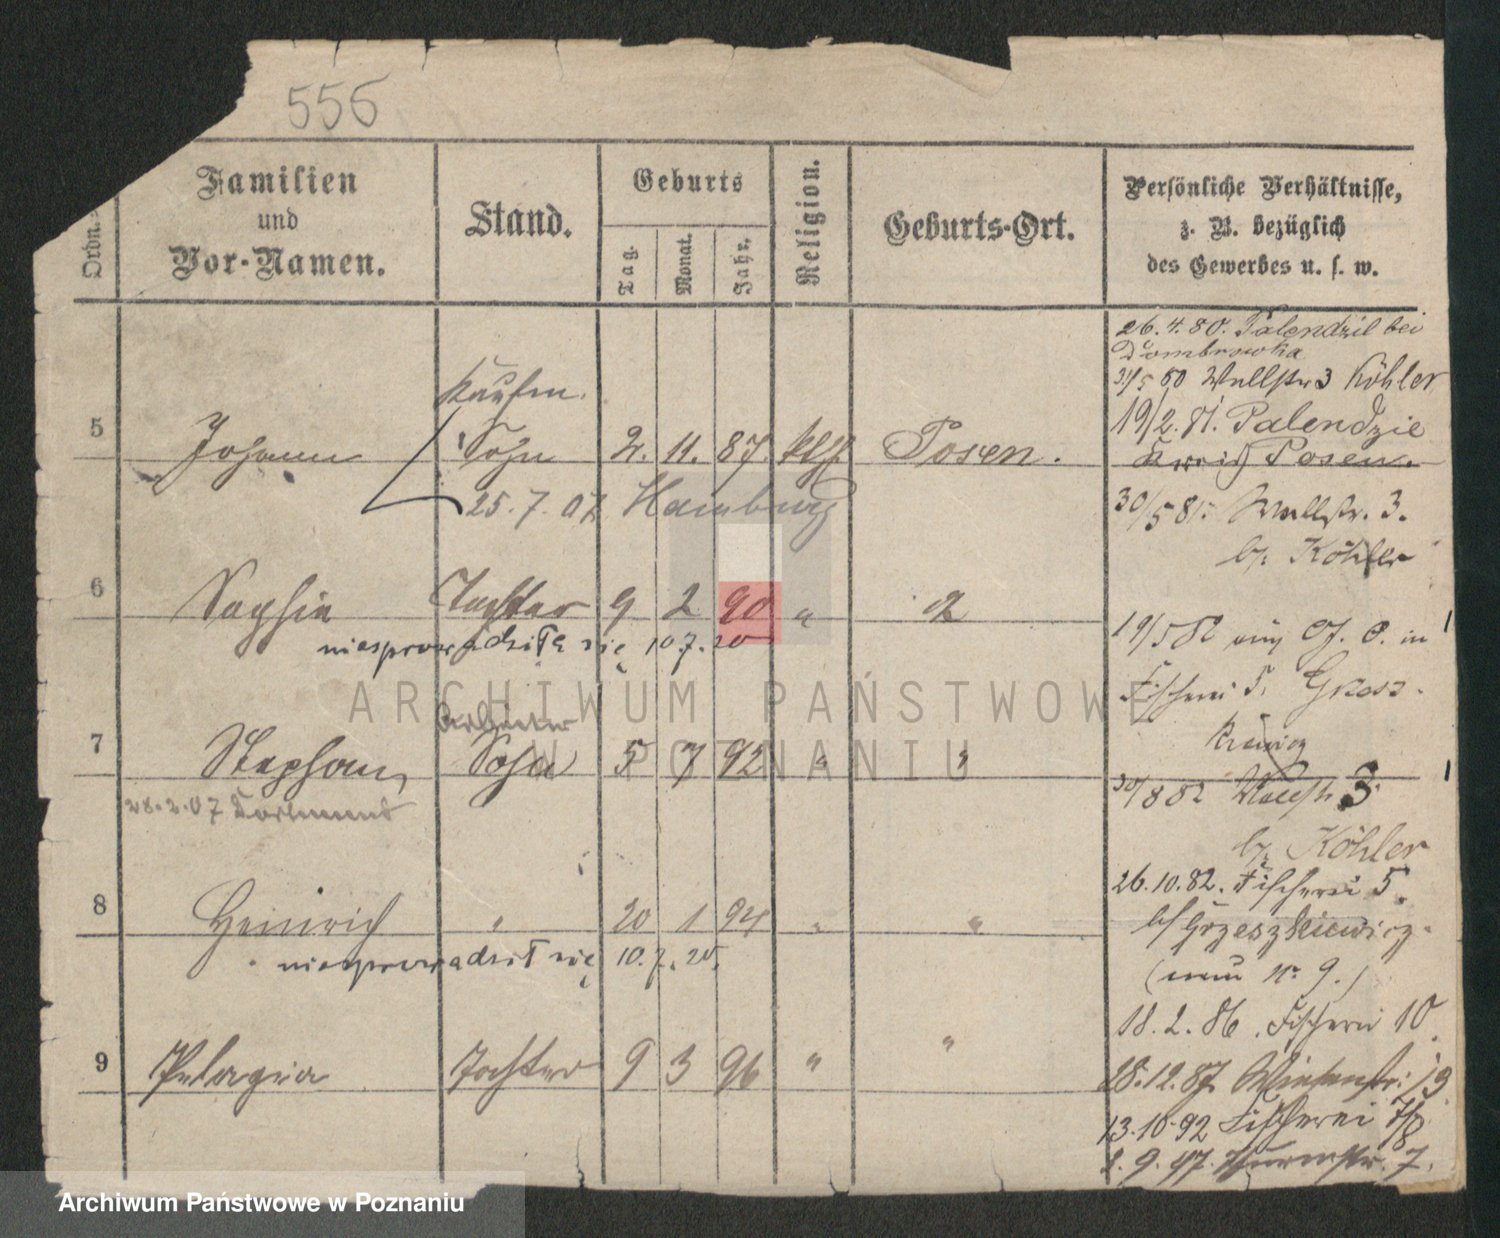 556
Ordn.
Familien
und
Vor-Namen.
Stand.
Geburts
Tag.
Monat.
Jahr.
Religion.
Geburts-Ort.
Persönliche Verhältnisse,
z. B. bezüglich
des Gewerbes u. s. w.
Kaufm.
5 Johann Sohn 2. 11. 87. kth. Posen.
25. 7. 07 Hamburg
6 Sophie Tochter 9 2 90 "
niesprowadziła się 10.7.20
Arbeiter
7 Stephan, Sohn 5 7 92 "
28.2.07 Dortmund
8 Heinrich " 20 1 94 " "
niesprowadził się 10.7.20.
9 Pelagia Tochter 9 3 96 " "
26.4.80. Palendzil bei
Dombrowka
31/5 80 Wallstr 3 Köhler
19/2.81. Palendzie
Kreis Posen.
30/5 81. Wallstr. 3.
b/ Köhler
19/5 82 in
Fischerei 5. Grzesz-
kiewicz
30/8 82 Wallstr 3
b/ Köhler
26.10.82. Fischerei 5.
b/ Grzeszkiewicz.
(neu No 9.)
18. 2. 86. Fischerei 10
28.12.87. Wiesenstr: 19
13.10.92 Fischerei 7/8
2. 9. 97. Thurmstr. 7.
ARCHIWUM PAŃSTWOWE
W POZNANIU
Archiwum Państwowe w Poznaniu